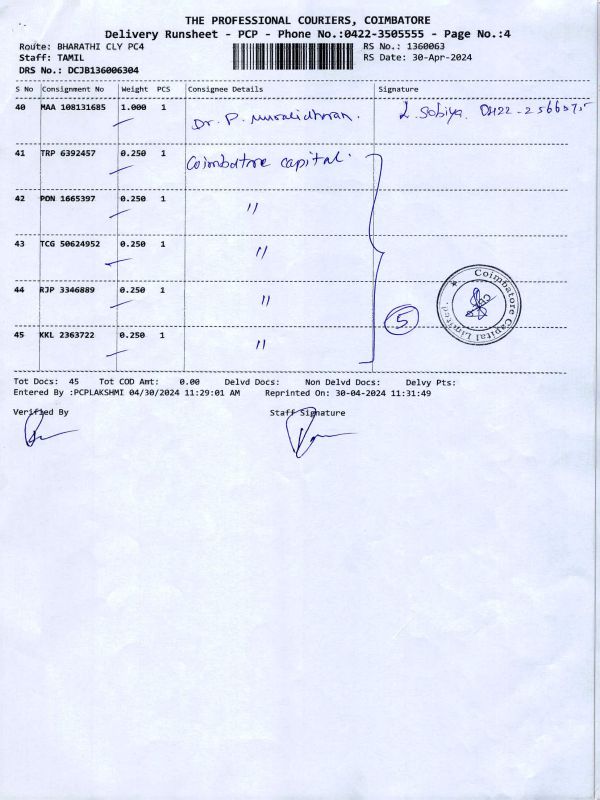 THE PROFESSIONAL COURIERS, COIMBATORE
Delivery Runsheet - PCP - Phone No.:0422-3505555 - Page No.:4
Route: BHARATHI CLY PC4 RS No.: 1360063
Staff: TAMIL RS Date: 30-Apr-2024
DRS No.: DCJB136006304
S No Consignment No Weight PCS Consignee Details Signature
40 MAA 108131685 1.000 1 Dr. P. Muralidharan. L. Sobiya. 0422-2566575
41 TRP 6392457 0.250 1 Coimbatore capital.
42 PON 1665397 0.250 1 "
43 TCG 50624952 0.250 1 "
44 RJP 3346889 0.250 1 "
45 KKL 2363722 0.250 1 "
5
Coimbatore Capital Limited
Tot Docs: 45 Tot COD Amt: 0.00 Delvd Docs: Non Delvd Docs: Delvy Pts:
Entered By :PCPLAKSHMI 04/30/2024 11:29:01 AM Reprinted On: 30-04-2024 11:31:49
Verified By Staff Signature